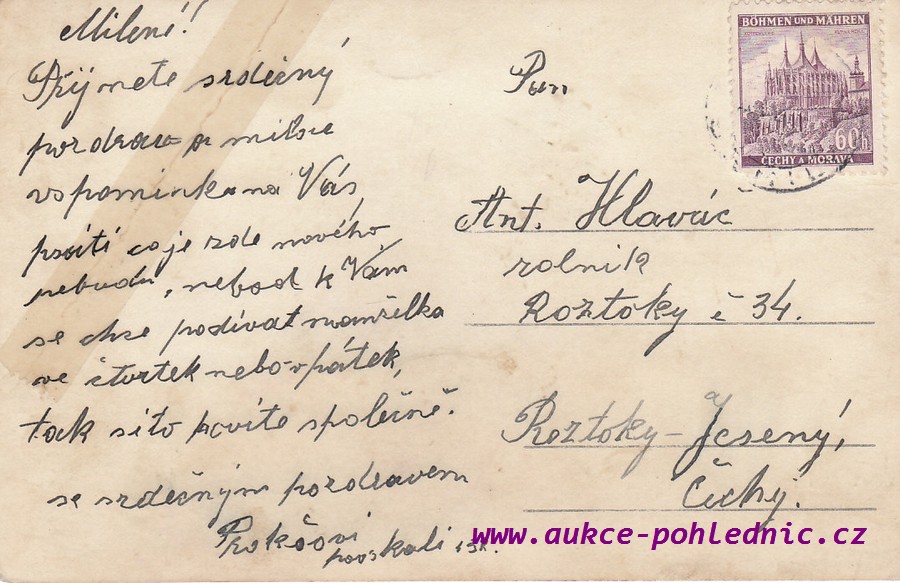 Milené!
Přijmete srdečný
pozdrav a milou
vspomínku na Vás,
psáti co je zde nového
nebudu, neboď k Vám
se chce podívat manželka
ve čtvrtek nebo v pátek,
tak si to povíte společně.
se srdečným pozdravem
Prokšovi
BÖHMEN UND MÄHREN
60h
ČECHY A MORAVA
Pan
Ant. Hlaváč
rolník
Roztoky č 34.
Roztoky-Jesený,
Čechy.
www.aukce-pohlednic.cz